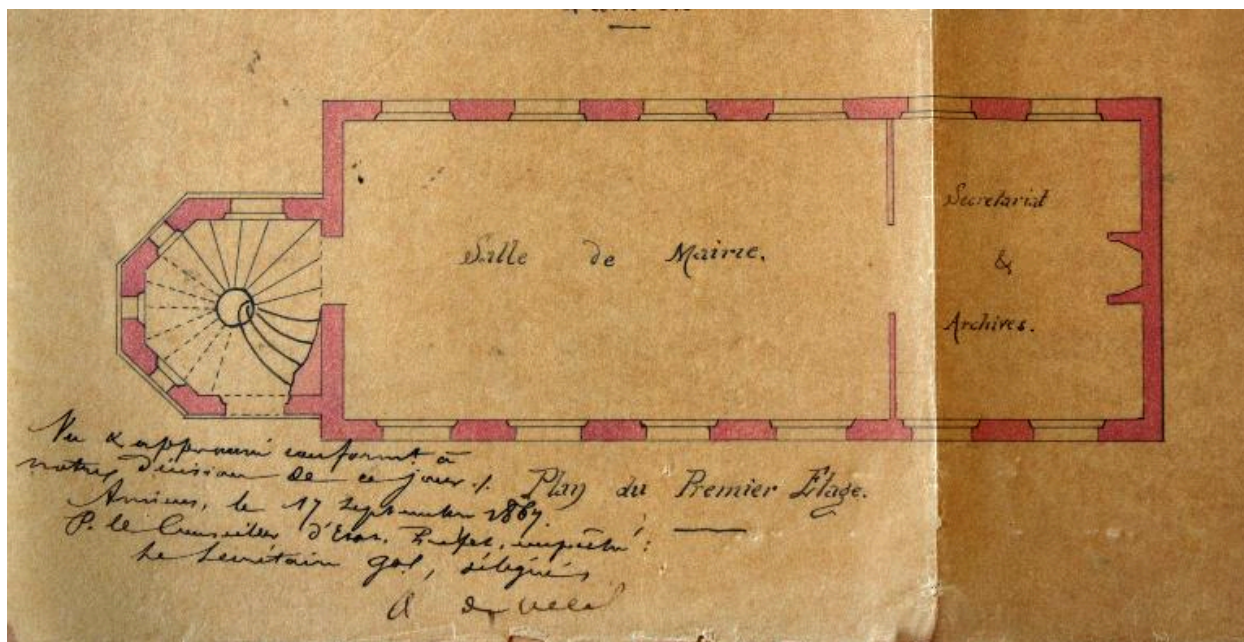 Salle de Mairie.
Secretariat
&
Archives.
Plan du Premier Etage.
Vu & approuvé conformt. à
notre décision de ce jour ./.
Amiens, le 17 Septembre 1867.
P. le Conseiller d'Etat, Préfet, empêché :
Le Secrétaire gal, délégué